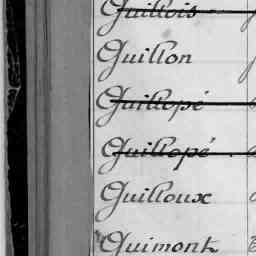 Guillois
Guillon
Guillopé
Guillopé
Guilloux
Guimont